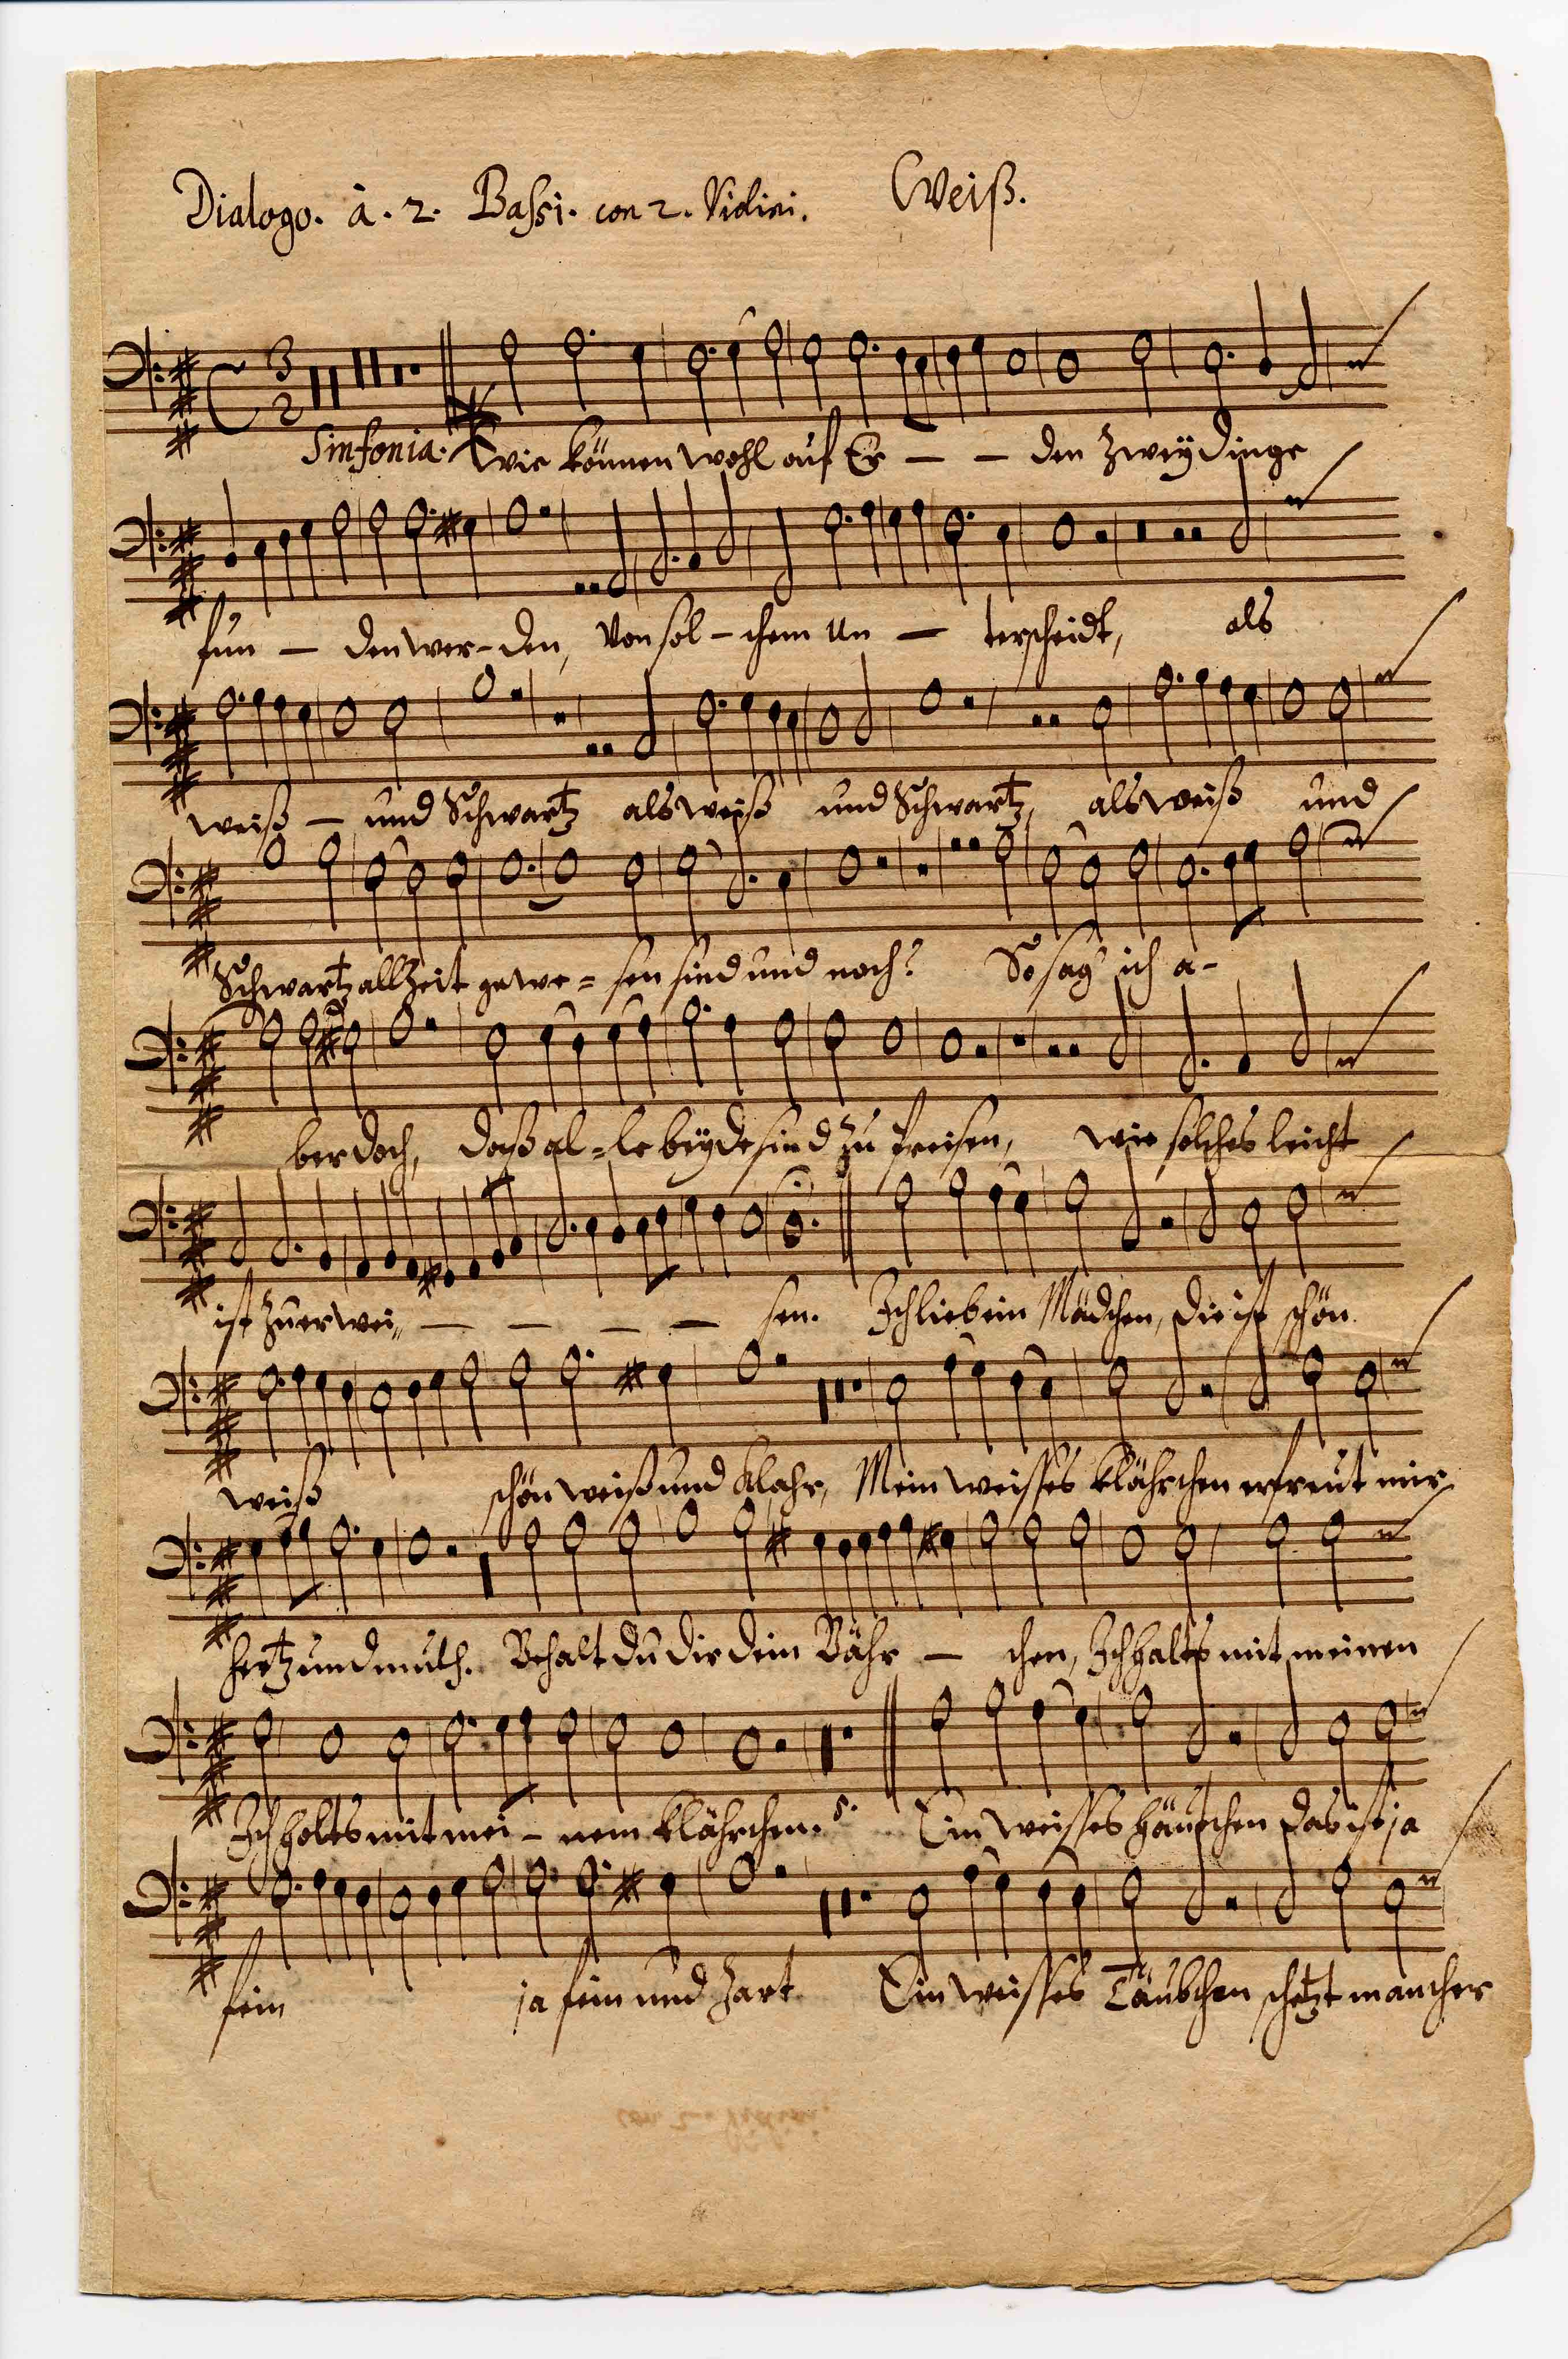 Dialogo. à. 2. Bassi. con 2. Violini. Weiß.
3
2
Sinfonia. wie können wohl auf Er – – den zweÿ dinge
fun – den wer – den, Von sol – chem Un – terscheidt, als
weiß – und Schwartz als weiß und Schwartz, als weiß und
Schwartz allzeit gewe = sen sind und noch? So sag' ich a –
ber doch, daß al = le beÿde sind zu preisen, wie solches leicht
ist zu erwei „ – – – – sen. Ich lieb ein Mädchen, die ist schön
weiß schön weiß und klahr, Mein weisses klährchen erfreut mir
hertz und muth. Behalt du dir dein Bähr – chen, Ich halts mit meinen
Ich halts mit mei – nem klährchen. Ein weisses häutchen das ist ja
fein ja fein und zart Ein weisses Täubchen schetzt mancher
con 2. Violini.